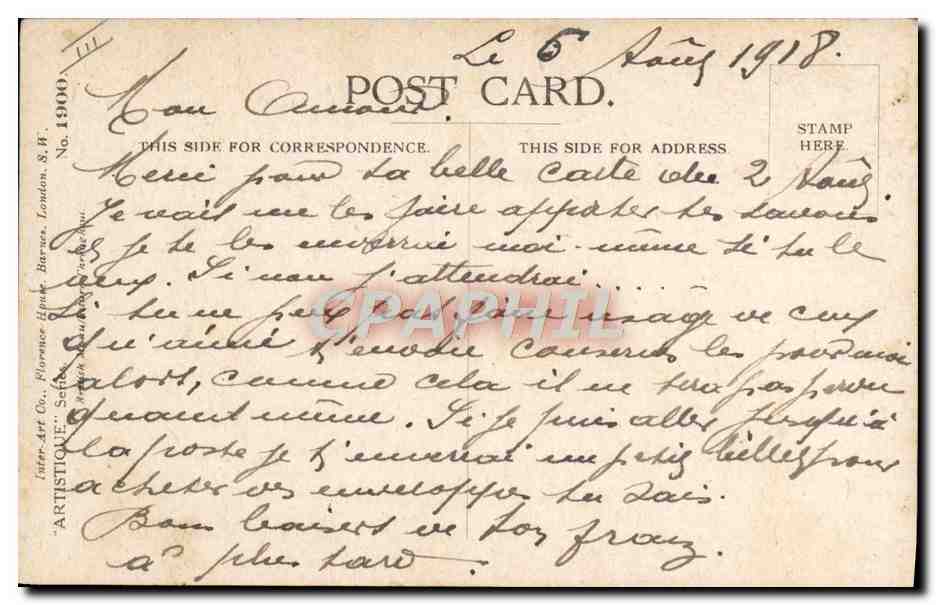 III
Le 6 Août 1918.
POST CARD.
Mon Amour.
THIS SIDE FOR CORRESPONDENCE.
THIS SIDE FOR ADDRESS
STAMP
HERE.
Merci pour ta belle carte du 2 Août
Je vais me les faire apporter tes savons
et je te les enverrai moi-même si tu le
veux. Si non j'attendrai.....
Si tu ne peux pas faire usage de ceux
qu'Aimé t'envoie conserves les pour moi
alors, comme cela il ne sera pas perdu
quant même. Si je puis aller jusqu'à
la poste je t'enverrai un petit billet pour
acheter des enveloppes tu sais.
Bons baisers de ton franz.
à plus tard.
Inter-Art Co., Florence House, Barnes, London, S.W.
"ARTISTIQUE" Series.
No. 1900.
British Manufacture
CPAPHIL